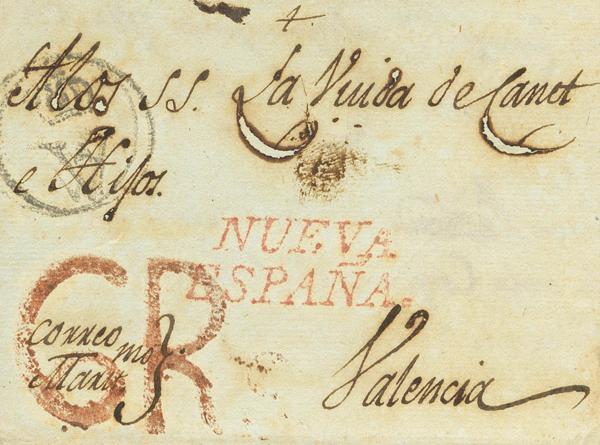 A los SS. La Viuda de Canet
e Hijos.
NUEVA
ESPAÑA.
GR
Correo
Marítmo
Valencia